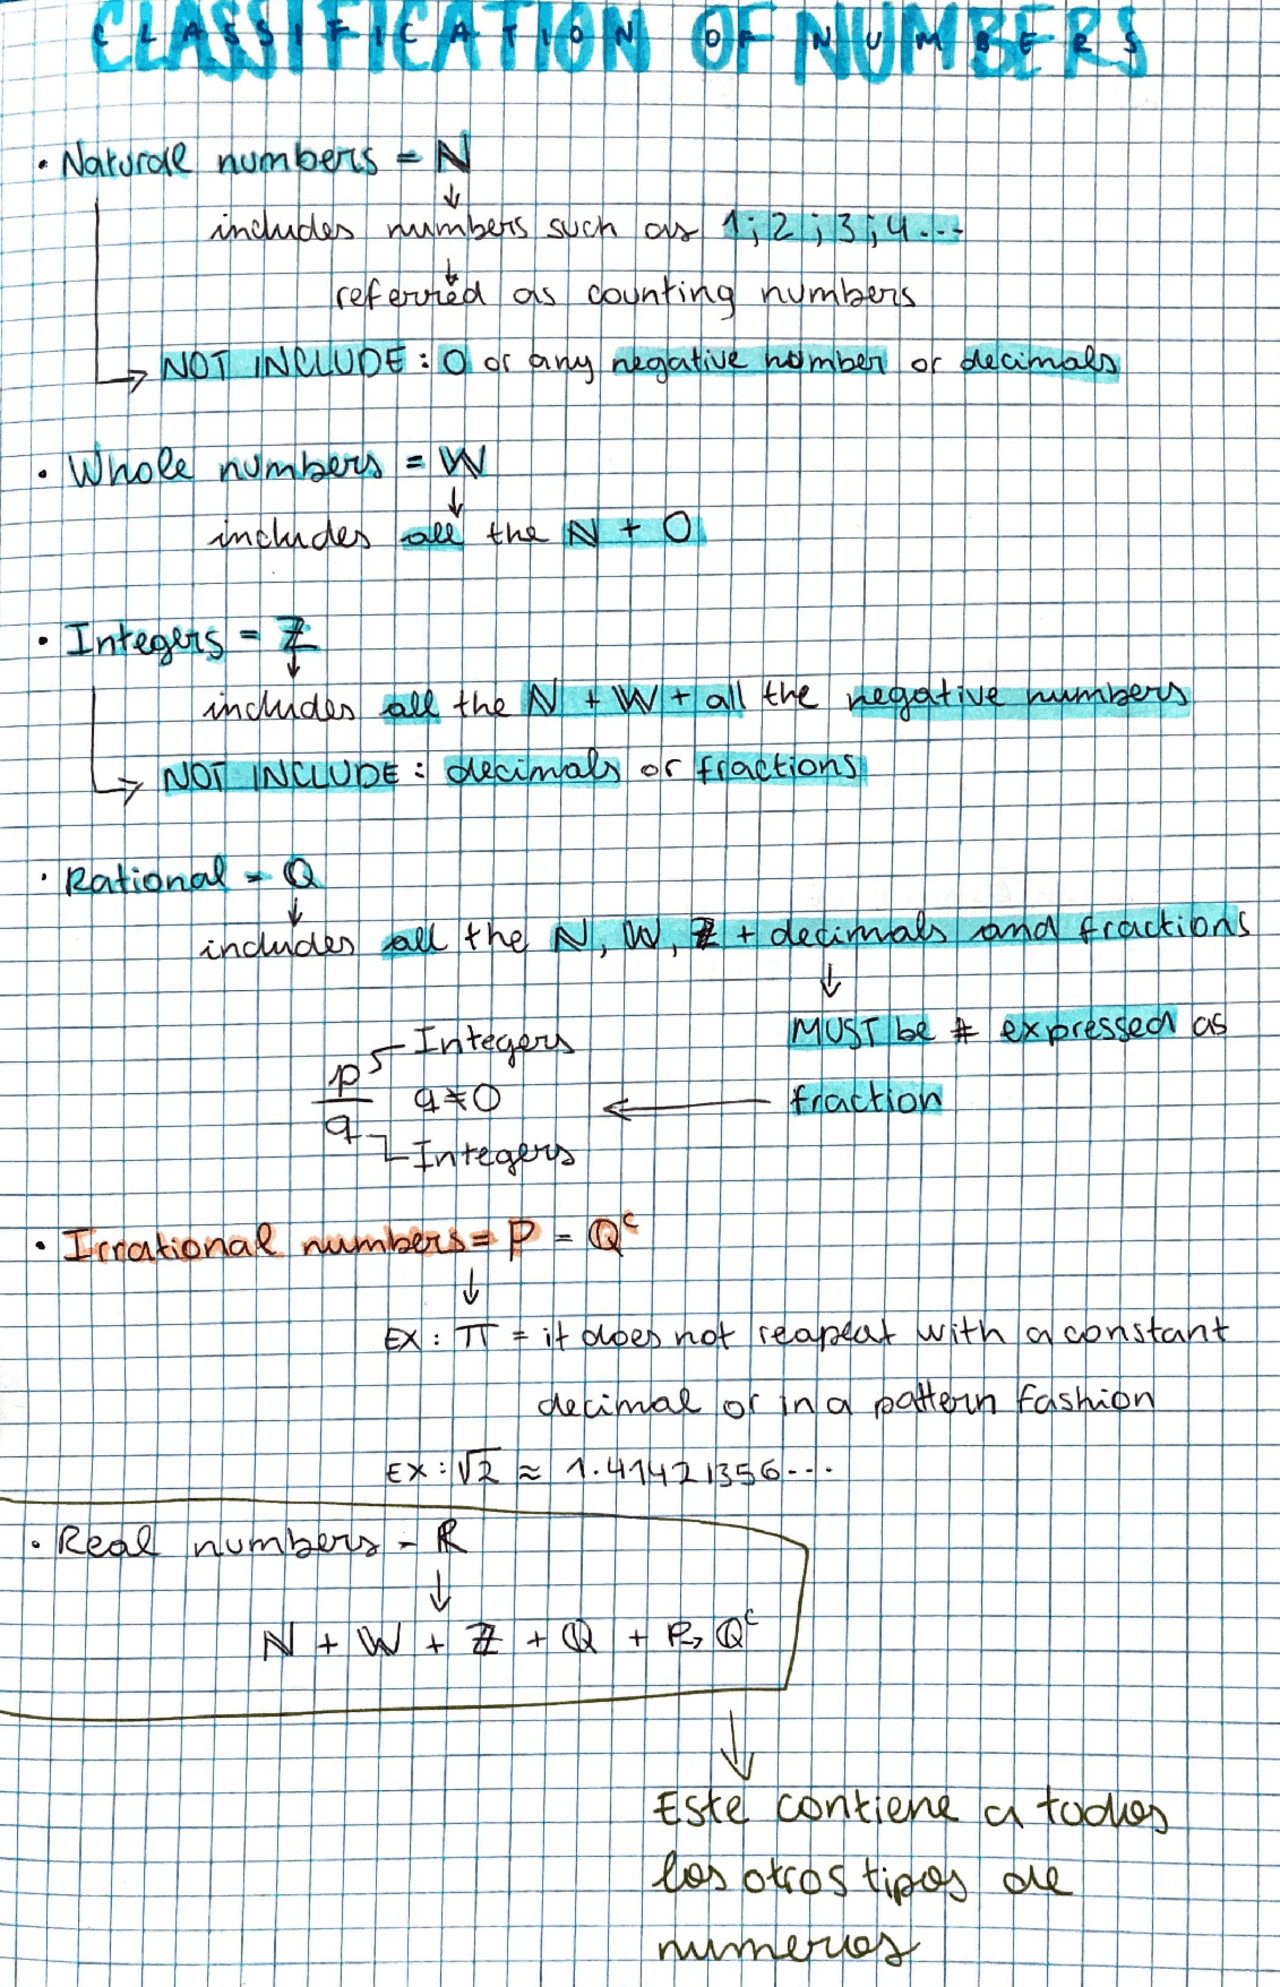 CLASSIFICATION OF NUMBERS
• Natural numbers = ℕ
↓
includes numbers such as 1; 2; 3; 4...
↓
referred as counting numbers
→ NOT INCLUDE: 0 or any negative number or decimals
• Whole numbers = W
↓
includes all the ℕ + 0
• Integers = ℤ
↓
includes all the ℕ + W + all the negative numbers
→ NOT INCLUDE: decimals or fractions
• Rational = ℚ
↓
includes all the ℕ, W, ℤ + decimals and fractions
↓
MUST be # expressed as
fraction
←
p/q
Integers
q≠0
Integers
• Irrational numbers = P = ℚᶜ
↓
EX: π = it does not reapeat with a constant
decimal or in a pattern fashion
EX: √2 ≈ 1.41421356...
• Real numbers - ℝ
↓
ℕ + W + ℤ + ℚ + P, ℚᶜ
↓
Este contiene a todos
los otros tipos de
numeros